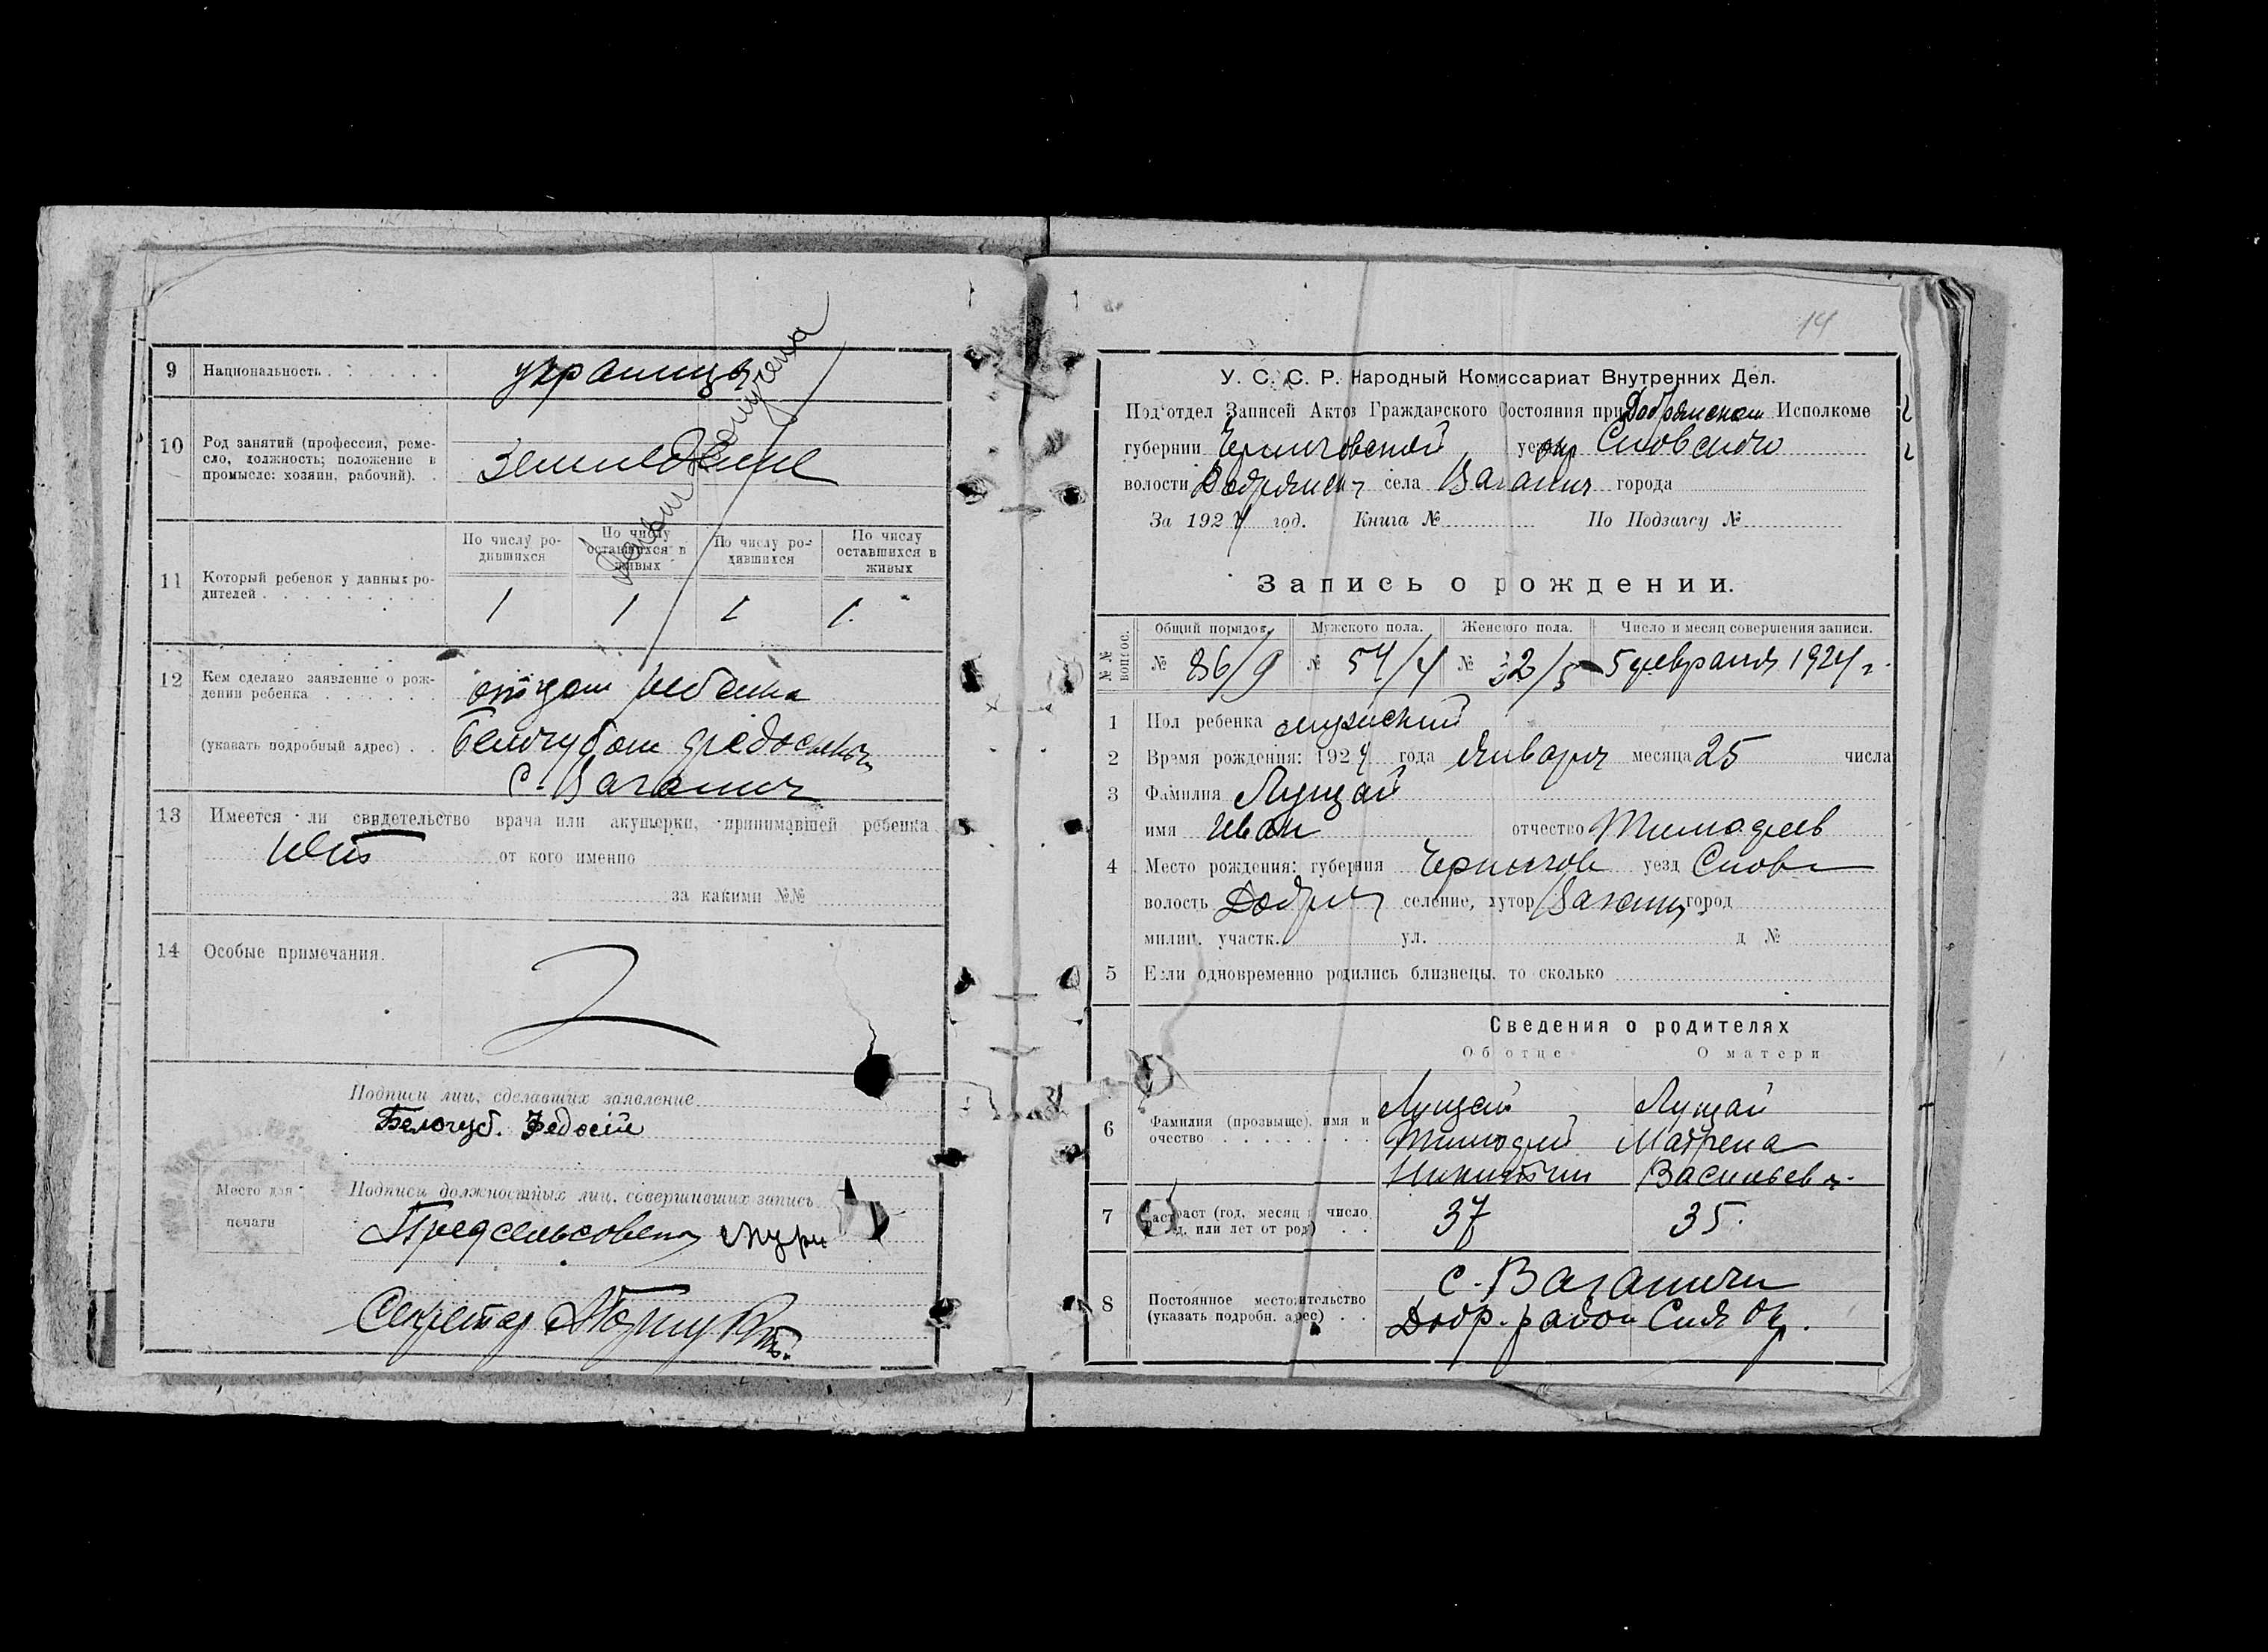 9 Национальность . . . . . . украинцы
10 Род занятий (профессия, реме-
сло, должность; положение в
промысле: хозяин, рабочий). . земледелие
11 Который ребенок у данных ро-
дителей . . . . . . . . . .
По числу ро-
дившихся
По числу
оставшихся в
живых
По числу ро-
дившихся
По числу
оставшихся в
живых
1 1 1 1.
12 Кем сделано заявление о рож-
дении ребенка . . . . . . . отцом ребенка
(указать подробный адрес) . . Белогубом
с. Ваганич
13 Имеется ли свидетельство врача или акушерки, принимавшей ребенка
нет от кого именно
за какими №№
14 Особые примечания.
Подписи лиц, сделавших заявление
Белогуб. Федосій
Место для
печати
Подписи должностных лиц, совершивших запись
Предсельсовета
Секретар
14
У. С. С. Р. Народный Комиссариат Внутренних Дел.
Подотдел Записей Актов Гражданского Состояния при Добрянском Исполкоме
губернии Черниговской окр Сновского
волости Добрянск села Ваганич города
За 1924 год. Книга № По Подзагсу №
Запись о рождении.
№№ вопрос.
Общий порядов. Мужского пола. Женского пола. Число и месяц совершения записи.
№ 86/9 № 54/4 № 32/5 5 февраля 1924 г.
1 Пол ребенка мужский
2 Время рождения: 1924 года Января месяца 25 числа
3 Фамилия Лущай
имя Иван отчество Тимофеев
4 Место рождения: губерния Чернигов уезд Снов
волость Добрян селение, хутор Ваганич город
милиц. участк. ул. д №
5 Если одновременно родились близнецы, то сколько
Сведения о родителях
Об отце О матери
6 Фамилия (прозвыще), имя и
очество . . . . . . . .
Лущай Лущай
Тимофей Матрена
Никитин Васильев
7 Возраст (год, месяц и число
рожд. или лет от род) . . 37 35.
8 Постоянное местожительство
(указать подробн. адрес) . .
с. Ваганичи
Добр. район Снов Ок.